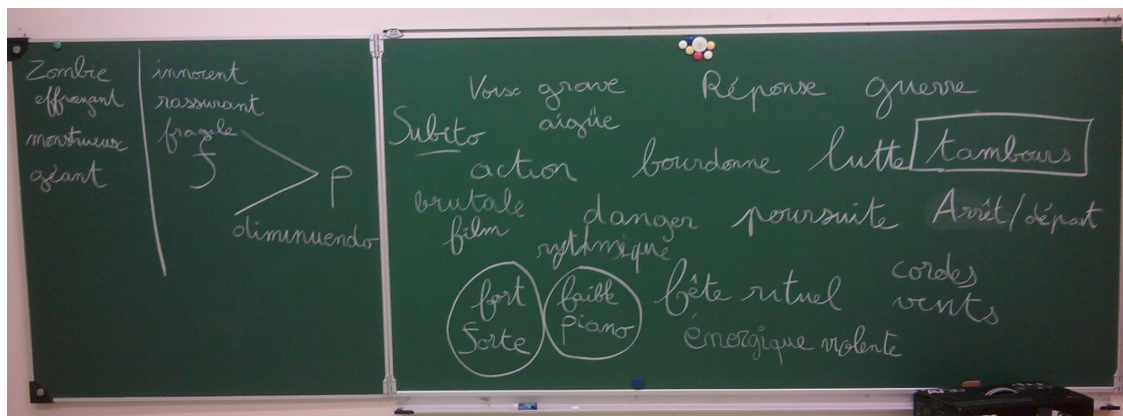 Zombie
effrayant
monstrueux
géant
innocent
rassurant
fragile
f
p
diminuendo
Voix grave
aigüe
Réponse guerre
Subito
action bourdonne lutte tambours
brutale danger poursuite Arrêt/départ
film
rythmique
fort
Forte
faible
piano
bête rituel
cordes
vents
énergique violente